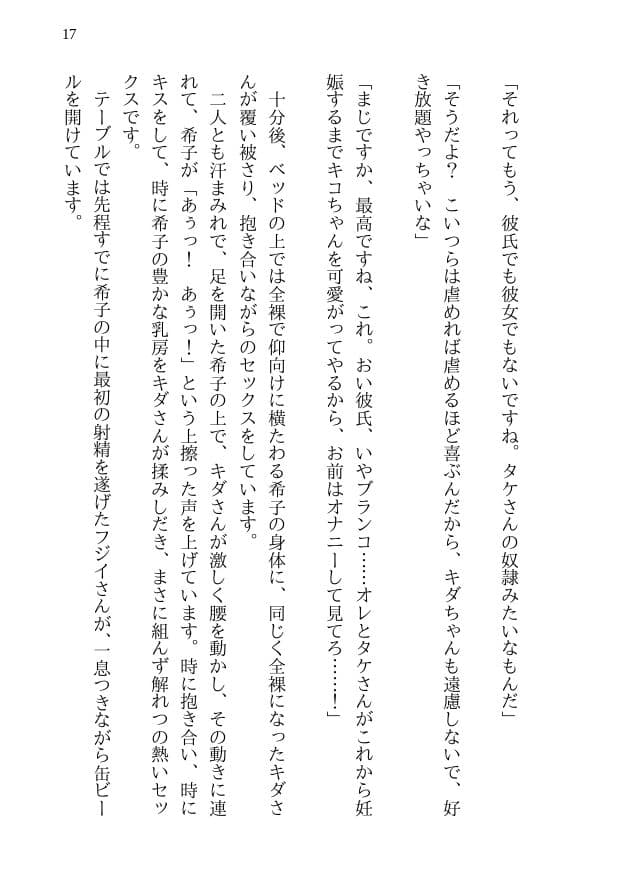 17
「それってもう、彼氏でも彼女でもないですね。タケさんの奴隷みたいなもんだ」
「そうだよ？　こいつらは虐めれば虐めるほど喜ぶんだから、キダちゃんも遠慮しないで、好
き放題やっちゃいな」
「まじですか、最高ですね、これ。おい彼氏、いやブランコ……オレとタケさんがこれから妊
娠するまでキコちゃんを可愛がってやるから、お前はオナニーして見てろ……！」
十分後、ベッドの上では全裸で仰向けに横たわる希子の身体に、同じく全裸になったキダさ
んが覆い被さり、抱き合いながらのセックスをしています。
二人とも汗まみれで、足を開いた希子の上で、キダさんが激しく腰を動かし、その動きに連
れて、希子が「あぅっ！　あぅっ！」という上擦った声を上げています。時に抱き合い、時に
キスをして、時に希子の豊かな乳房をキダさんが揉みしだき、まさに組んず解れつの熱いセッ
クスです。
テーブルでは先程すでに希子の中に最初の射精を遂げたフジイさんが、一息つきながら缶ビー
ルを開けています。